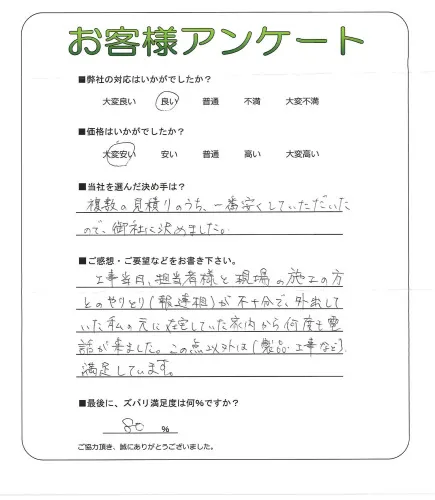 お客様アンケート
■弊社の対応はいかがでしたか?
大変良い 良い 普通 不満 大変不満
■価格はいかがでしたか?
大変安い 安い 普通 高い 大変高い
■当社を選んだ決め手は?
複数の見積りのうち、一番安くしていただいた
ので、御社に決めました。
■ご感想・ご要望などをお書き下さい。
工事当日、担当者様と現場の施工の方
とのやりとり(報連相)が不十分で、外出して
いた私の元に在宅していた家内から何度も電
話が来ました。この点以外は(製品・工事など)、
満足しています。
■最後に、ズバリ満足度は何%ですか?
80 %
ご協力頂き、誠にありがとうございました。